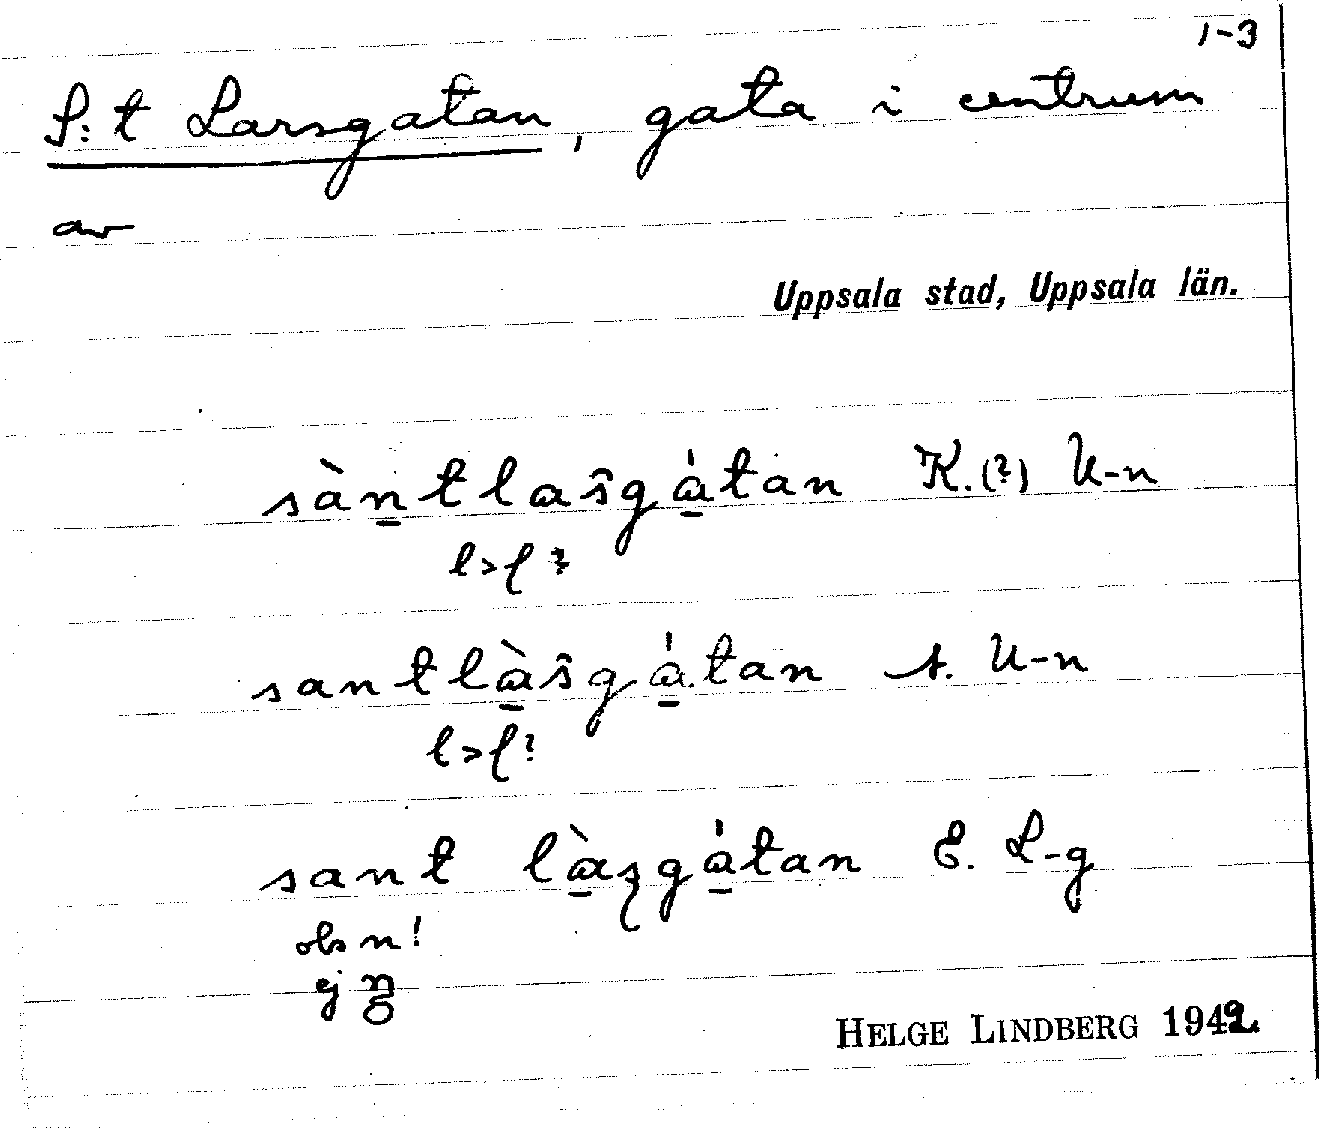 1-3
S:t Larsgatan, gata i centrum
av
Uppsala stad, Uppsala län.
sàn̲tlaŝgȧ̲tan K.(?) U-n
l>ɭ?
santlà̲ŝgȧ̲tan A. U-n
l>ɭ?
sant là̲ʂgȧ̲tan E. L-g
obs n!
ej
HELGE LINDBERG 1942